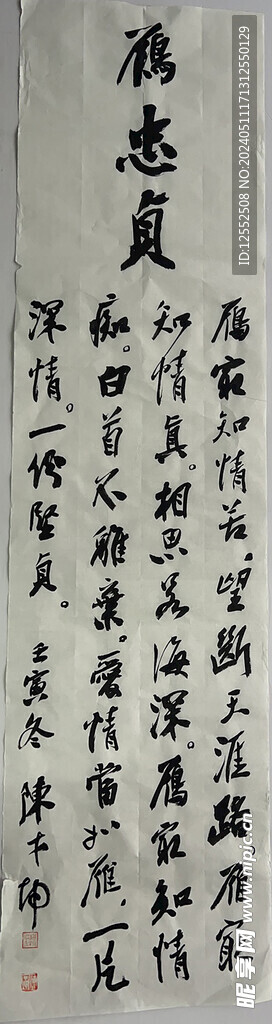 鴈忠貞
鴈最知情苦，望斷天涯路。雁最
知情真。相思若海深。鴈最知情
痴。白首不離棄。愛情當如雁，一片
深情。一份堅貞。
壬寅冬 陳才坤
ID:12552508 NO:20240511171312550129
昵享网 www.nipic.cn